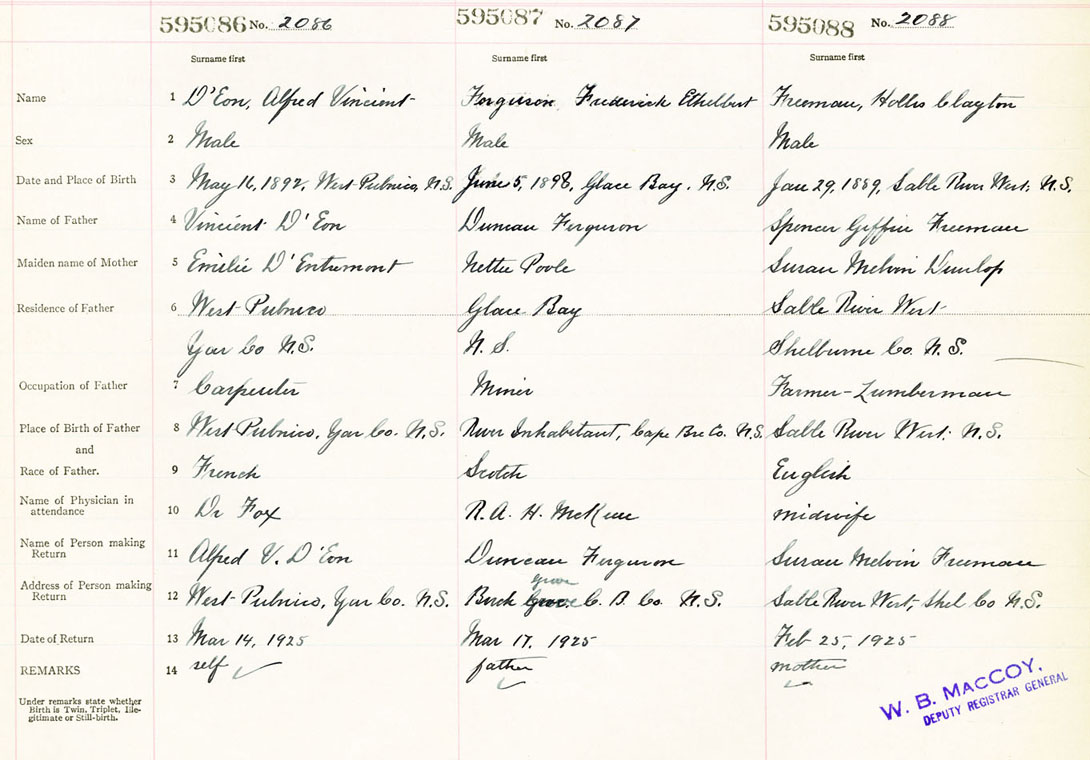 595086 No. 2086 595087 No. 2087 595088 No. 2088
Surname first Surname first Surname first
Name 1 D'Eon, Alfred Vincient Ferguson Frederick Ethelbert Freeman, Hollis Clayton
Sex 2 Male Male Male
Date and Place of Birth 3 May 16, 1892, West Pubnico, N.S. June 5, 1898, Glace Bay. N.S. Jan 29, 1889, Sable River West. N.S.
Name of Father 4 Vincient D'Eon Duncan Ferguson Spencer Giffin Freeman
Maiden name of Mother 5 Emilie D'Entremont Nettie Poole Susan Melvin Dunlop
Residence of Father 6 West Pubnico Glace Bay Sable River West
Yar Co N.S. N. S. Shelburne Co. N.S.
Occupation of Father 7 Carpenter Miner Farmer-Lumberman
Place of Birth of Father 8 West Pubnico, Yar Co. N.S. River Inhabitant, Cape Bre Co. N.S. Sable River West. N.S.
and
Race of Father. 9 French Scotch English
Name of Physician in
attendance 10 Dr Fox R. A. H. McKeen midwife
Name of Person making
Return 11 Alfred V. D'Eon Duncan Ferguson Susan Melvin Freeman
grove
Address of Person making
Return 12 West Pubnico, Yar Co. N.S. Birch C. B. Co. N.S. Sable River West, Shel Co N.S.
Date of Return 13 Mar 14, 1925 Mar 17, 1925 Feb 25, 1925
REMARKS 14 self father mother
Under remarks state whether
Birth is Twin, Triplet, Ille-
gitimate or Still-birth.
W. B. MACCOY.
DEPUTY REGISTRAR GENERAL